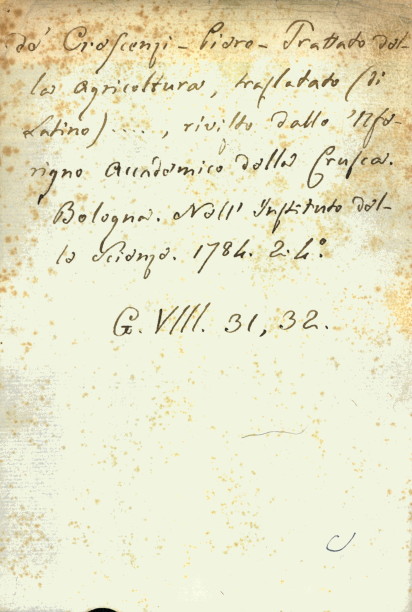 de' Crescenzi - Piero - Trattato del-
la Agricoltura, traslatato (di
Latino)...., rivisto dallo 'Nfe-
rigno Accademico della Crusca.
Bologna. Nell' Instituto del-
le Scienze. 1784. 2. 4.°
G. VIII. 31, 32.